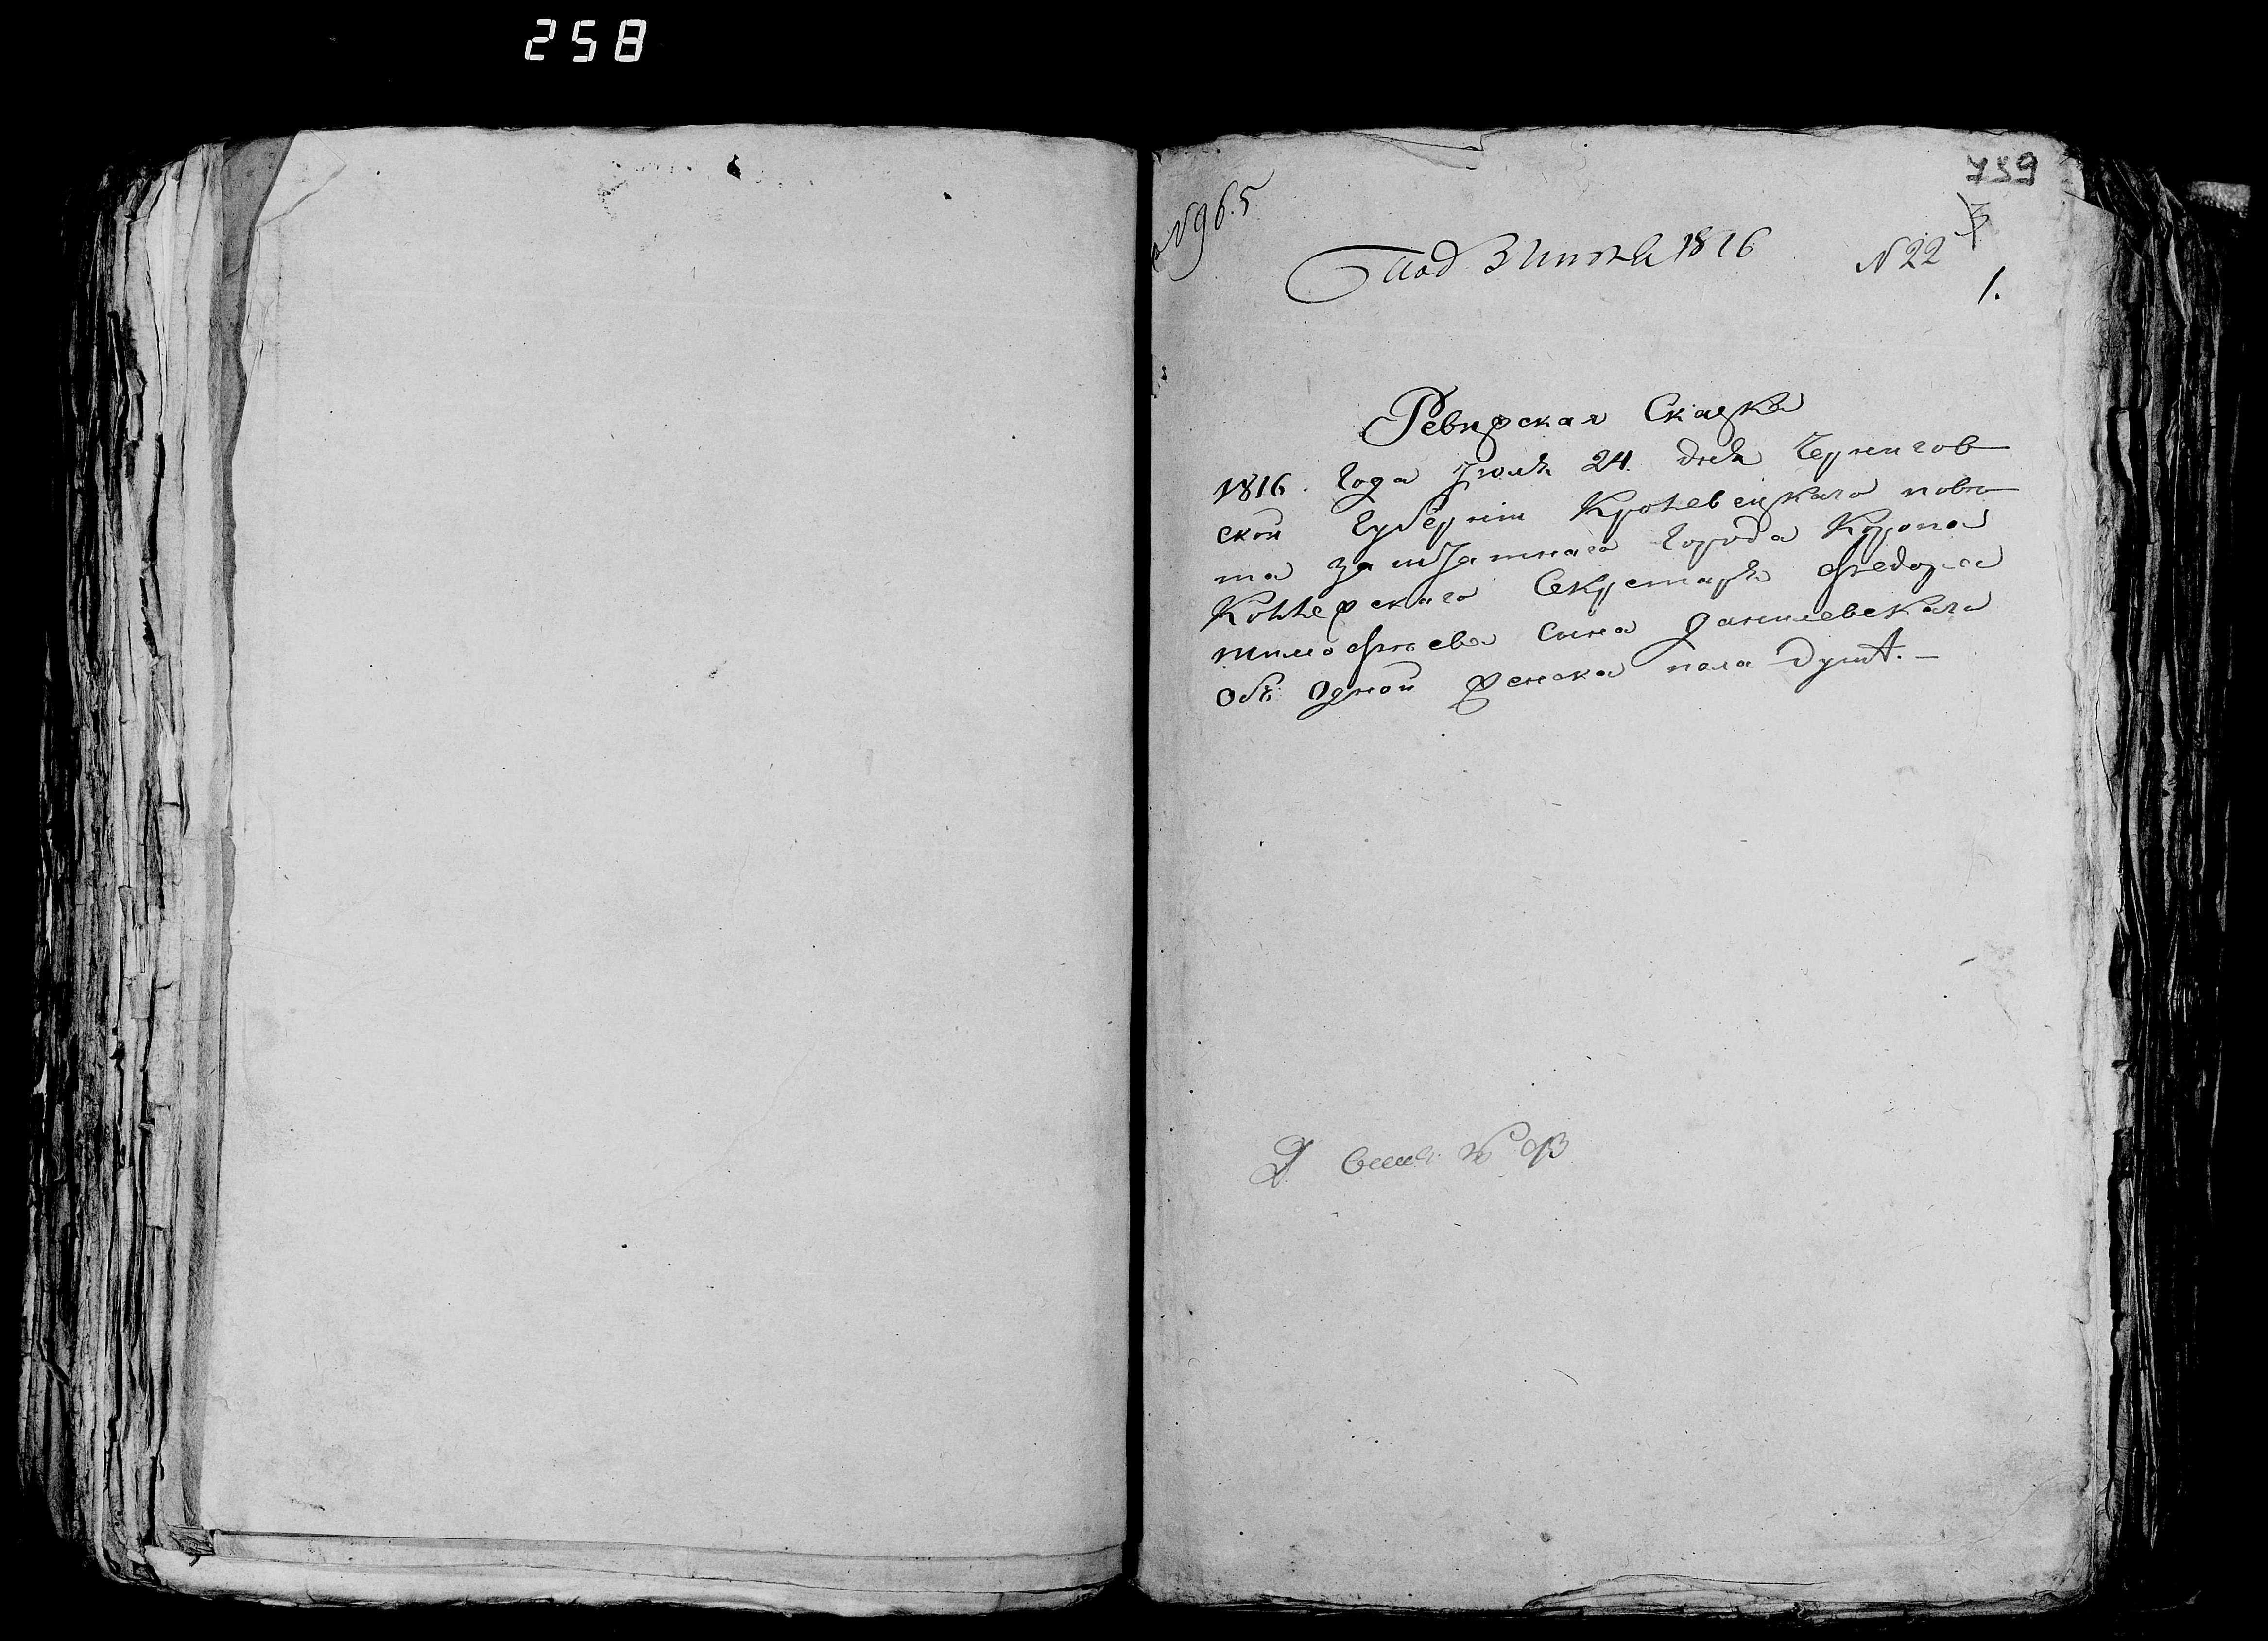 258
759
№ 965
Под 3 Июля 1816 № 22
1.
Ревизская Сказка
1816. Года Июля 24. дня Чернигов
ской Губернiи Кролевецкаго повѣ
та заштатнаго Города Коропа
Колежскаго Секретаря Федора
тимофѣева сына Данилевскаго
объ Одной женска пола душѣ. —